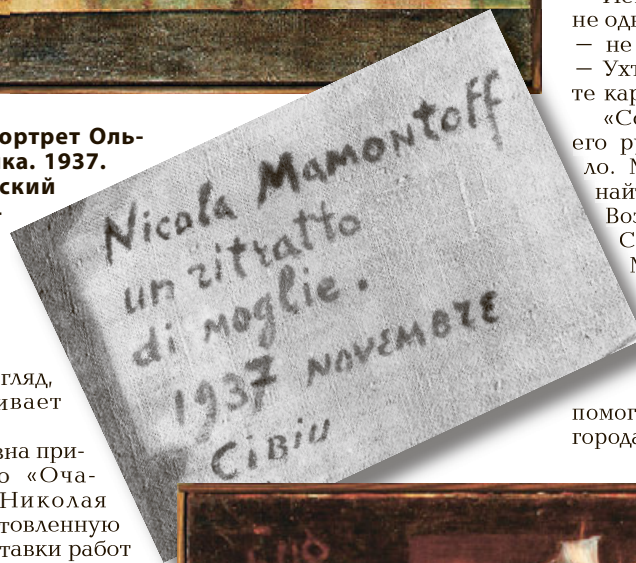 ортрет Оль-
ка. 1937.
ский
Nicola Mamontoff
un ritratto
di moglie.
1937 NOVEMBRE
CiBiu
гляд,
ивает
вна при-
о «Оча-
Николая
товленную
тавки работ
не
— не
— Ухт
те кар
его
ло.
най
Воз
С
помог
города